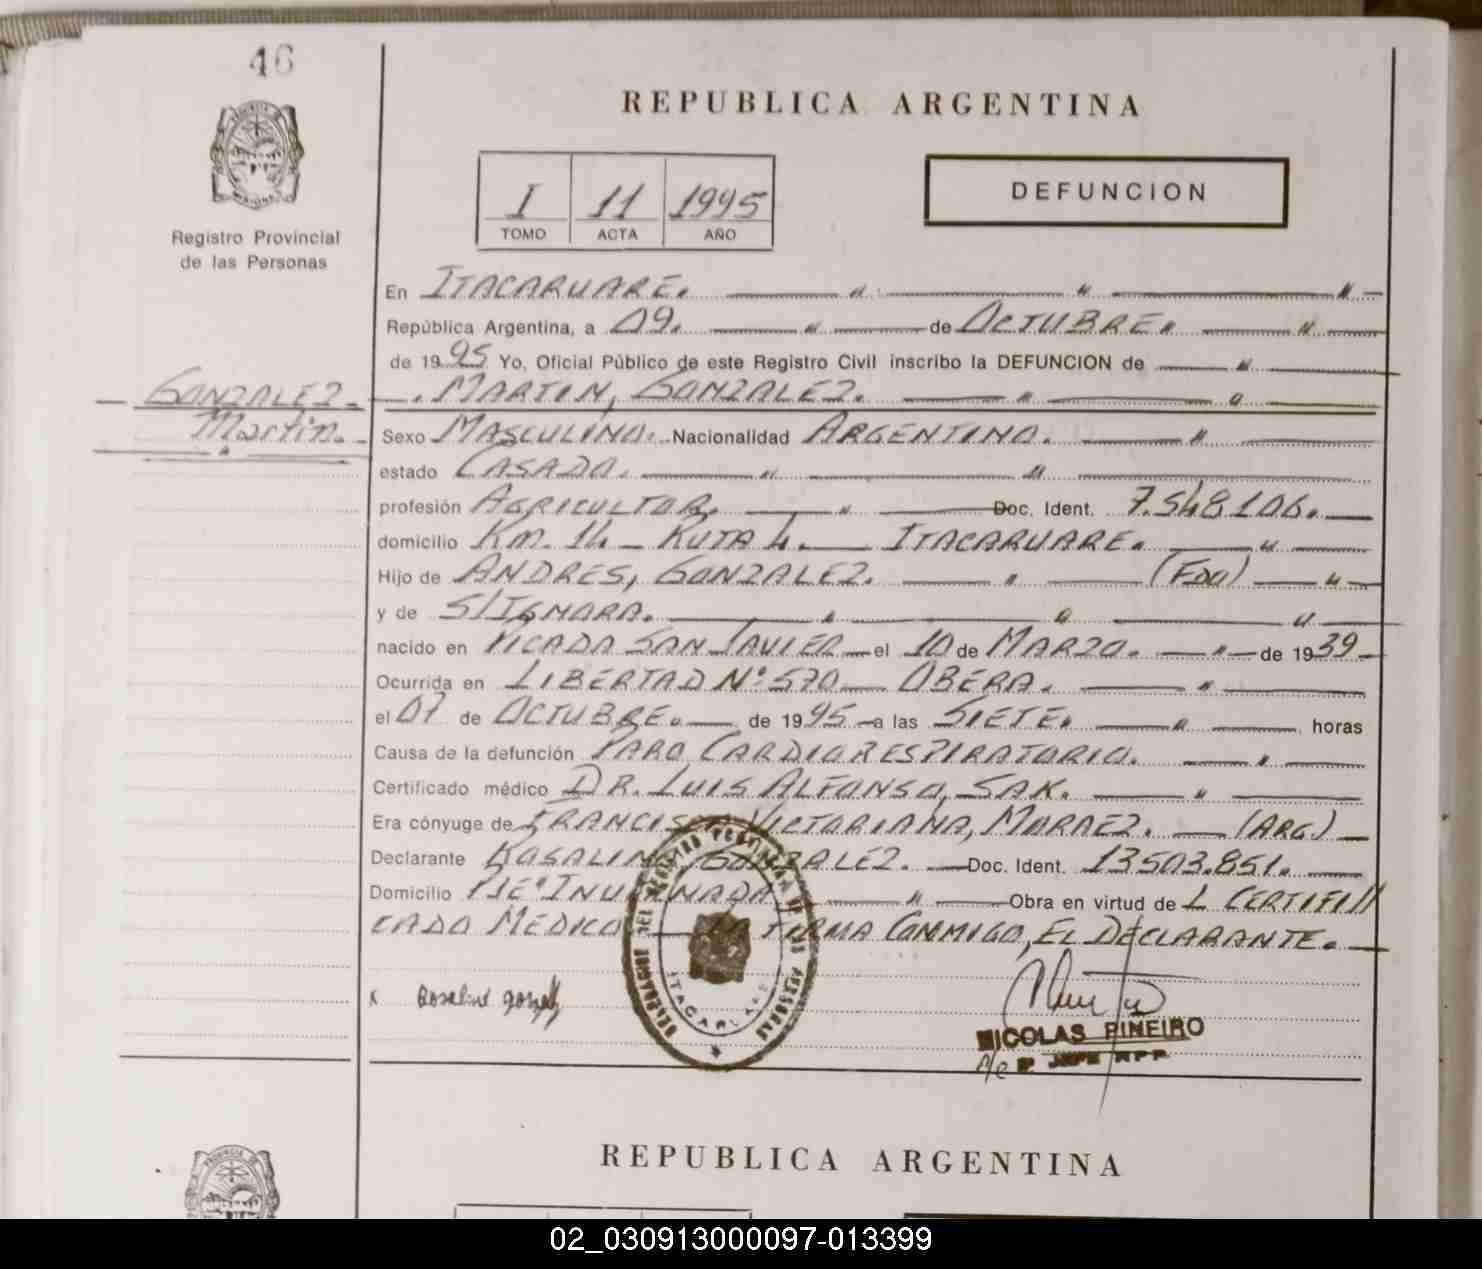 46
REPUBLICA ARGENTINA
DEFUNCION
I 11 1995
TOMO ACTA AÑO
Registro Provincial
de las Personas
En ITACARUARE.
República Argentina, a 09. de OCTUBRE.
de 1995 Yo, Oficial Público de este Registro Civil inscribo la DEFUNCION de
GONZALEZ - MARTIN, GONZALEZ.
Martin.
Sexo MASCULINO. Nacionalidad ARGENTINO.
estado CASADO.
profesión AGRICULTOR. Doc. Ident. 7.548106.
domicilio KM. 14 - RUTA 4. ITACARUARE.
Hijo de ANDRES, GONZALEZ. (FDO)
y de S/IGNORA.
nacido en PICADA SAN JAVIER el 10 de MARZO. de 1939
Ocurrida en LIBERTAD Nº 570 OBERA.
el 07 de OCTUBRE. de 1995 a las SIETE. horas
Causa de la defunción PARO CARDIORESPIRATORIO.
Certificado médico DR. LUIS ALFONSO, SAK.
Era cónyuge de FRANCISCA VICTORIANA, (ARG.)
Declarante ROSALINO, GONZALEZ. Doc. Ident. 13503.851.
Domicilio Obra en virtud de L CERTIFI//
CADO MEDICO FIRMA CONMIGO, EL DECLARANTE.
x
ITACARUARE
NICOLAS PINEIRO
REPUBLICA ARGENTINA
02_030913000097-013399